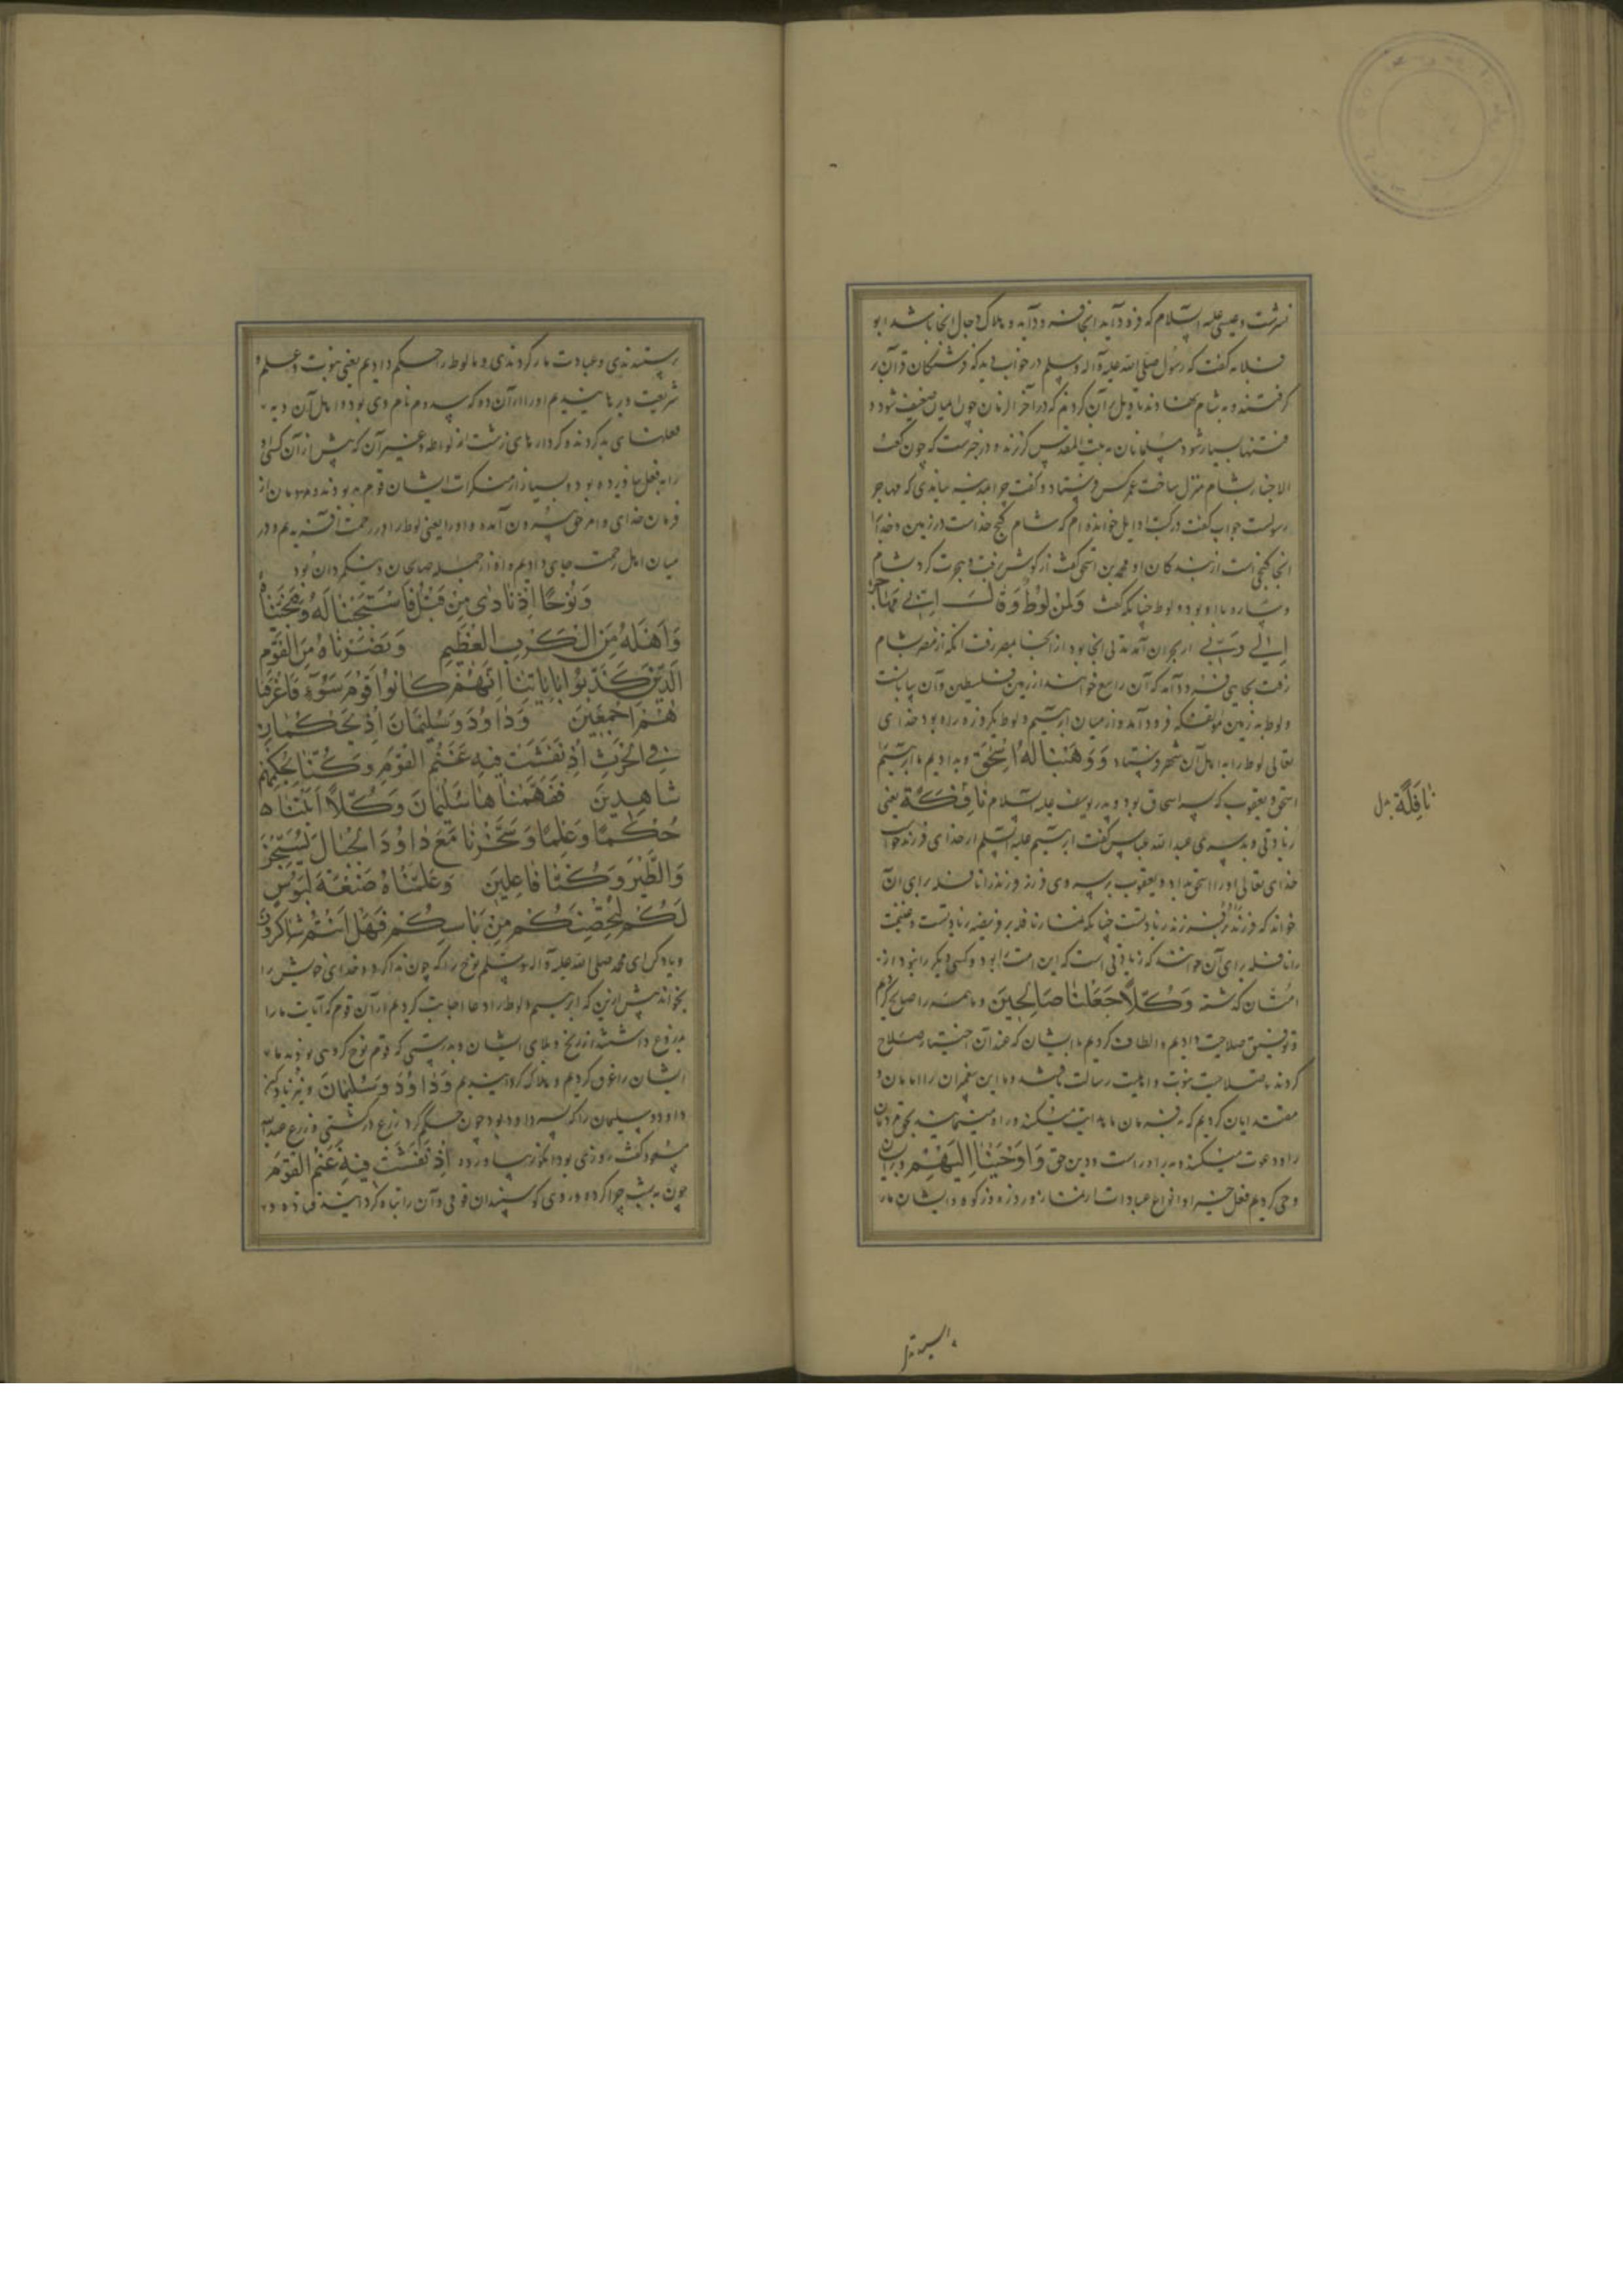 نشرست و عیسی علیه السّلام که فرود آید آنجا فرود آید و هلاک دجال آنجا باشد ابو
قلابه گفت که رسول صلّی الله علیه و آله و سلم در خواب دید که فرشتگان قرآن بر
گرفتند و به شام بنهادند تاویل بر آن کردند که در آخر الزمان چون ایمان ضعیف شود و
فتنها بسیار شود مسلمانان به بیت المقدس گریزند و در خبرست که چون کعب
الاحبار بشام منزل ساخت عمر کس فرستاد و گفت چرا بمدینه نیایدی که مهاجر
رسولست جواب گفت در کتب اوایل خوانده ام که شام گنج خداست در زمین و خدا را
آنجا گنجی است از بندگان او محمد بن اسحق گفت از کوثی برفت و هجرت کرد بشام
و ساره با او بود و لوط چنانکه گفت فَآمَنَ لَهُ لُوطٌ وَقَالَ اِنّی مُهَاجِرٌ
اِلیٰ رَبّی از حران آمد مدتی آنجا بود از آنجا بمصر رفت آنگه از مصر بشام
رفت بجایی فرود آمد که آن را سبع خوانند از زمین فلسطین و آن بیابانست
و لوط به زمین مؤتفکه فرود آمد و از میان ابرهیم و لوط یکروزه راه بود خدای
تعالی لوط را به اهل آن شهر فرستاد وَوَهَبْنَا لَهُ اِسْحٰقَ و بدادیم ما ابرهیم را
اسحق و یعقوب که پسر اسحاق بود و پدر یوسف علیه السلام نافِلَةً یعنی
زیادتی و بدرستی عبدالله عباس گفت ابرهیم علیه السّلم از خدای فرزند خواست
خدای تعالی او را اسحق بداد و یعقوب پسر وی فرزند فرزند را نافله برای آن
خواند که فرزند فرزند زیادتست چنانکه نماز نافله بر فریضه زیادتست و غنیمت
را نافله برای آن خوانند که زیادتی است که این امت را بود و کسی دیگر را نبود از
امتان گذشته وَكُلّاً جَعَلْنٰا صٰالِحِینَ و ما همه را صالح کردیم
و توفیق صلاحیت دادیم و الطاف کردیم با ایشان که عند آن اختیار صلاح
کردند تا صلاحیت نبوت و اهلیت رسالت یافتند و ما این پیغمبران را امامان و
مقتدایان کردیم که به فرمان ما هدایت میکنند و راه مینمایند بحق مردمان
را و دعوت میکنند به راه راست و دین حق وَاَوْحَیْنٰا اِلَیْهِمْ و بدیشان
وحی کردیم فعل خیر او انواع عبادات از نماز و روزه و زکوة و ایشان مار
نٰافِلَةً بدل
پرستیدندی و عبادت ما کردندی و ما لوط را حکم دادیم یعنی نبوت و علم و
شریعت و برهانیدیم او را از آن ده که سدوم نام وی بود و اهل آن دیه
فعلهای بد کردند و کردارهای زشت از لواطه و غیر آن که پیش از آن کسی آن
را به فعل نیاورده بود و بسیار از منکرات ایشان قوم بد بودند و مردمان از
فرمان خدای و امر حق بیرون آمده و او را یعنی لوط را در رحمت آفریدیم و در
میان اهل رحمت جای دادیم و او از جمله صالحان و نیکمردان بود
وَنُوْحًا اِذْ نٰادٰی مِنْ قَبْلُ فَاسْتَجَبْنٰا لَهُ فَنَجَّیْنٰاهُ
وَاَهْلَهُ مِنَ الْكَرْبِ الْعَظِیْمِ وَنَصَرْنٰاهُ مِنَ الْقَوْمِ
الَّذِیْنَ كَذَّبُوْا بِاٰیٰاتِنٰا اِنَّهُمْ كَانُوْا قَوْمَ سَوْءٍ فَاَغْرَقْنَا
هُمْ اَجْمَعِیْنَ وَدٰاوُدَ وَسُلَیْمٰانَ اِذْ یَحْكُمٰانِ
فِی الْحَرْثِ اِذْ نَفَشَتْ فِیهِ غَنَمُ الْقَوْمِ وَكُنّٰا لِحُكْمِهِمْ
شٰاهِدِینَ فَفَهَّمْنٰاهٰا سُلَیْمٰانَ وَكُلّاً اٰتَیْنٰاه
حُكْمًا وَعِلْمًا وَسَخَّرْنٰا مَعَ دٰاوُدَ الْجِبٰالَ یُسَبِّحْنَ
وَالطَّیْرَ وَكُنّٰا فٰاعِلِینَ وَعَلَّمْنٰاهُ صَنْعَةَ لَبُوسٍ
لَكُمْ لِتُحْصِنَكُمْ مِنْ بَأسِكُمْ فَهَلْ اَنْتُمْ شٰاكِرُونَ
و یاد کن ای محمد صلی الله علیه و آله و سلم نوح را که چون ندا کرد و خدای خویش را
بخواند پیش ازین که ابرهیم و لوط را دعا اجابت کردیم از آن قوم که آیات ما را
دروغ داشتند از رنج و بلای ایشان و بدرستی که قوم نوح گروهی بودند بد ما
ایشان را غرق کردیم و هلاک گردانیدیم وَدٰاوُدَ وَسُلَیْمٰانَ و نیز یاد کن
داود و سلیمان را که پسر داود بود چون حکم کرد در زرع و کشتی و زرع عبدالله
مسعود گفت روزی بود انگور بیاورده اِذْ نَفَشَتْ فِیهِ غَنَمُ الْقَوْمِ
چون به شب چرا کرده در وی گوسپندان قومی و آن را تباه گردانیده